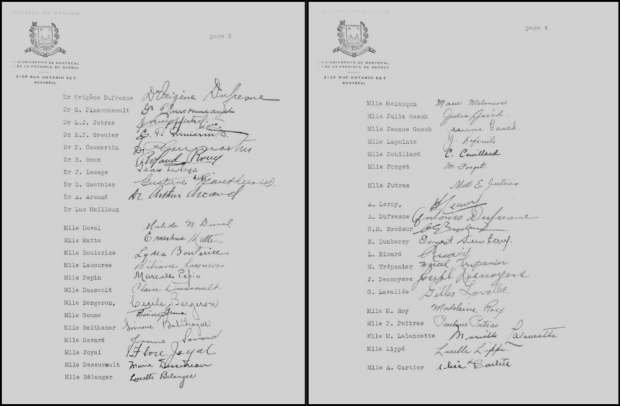 page 3
L'UNIVERSITE DE MONTRÉAL
DE LA PROVINCE DE QUÉBEC
4120 RUE ONTARIO EST
MONTRÉAL
Dr Origène Dufresne Dr Origène Dufresne
Dr G. Pinsonneault
Dr L.J. Jutras
Dr E.P. Grenier
Dr P. Coumartin
Dr R. Roux Roland Roux
Dr J. Lesage Jean Lesage
Dr G. Gauthier Gustave Gauthier
Dr A. Arcand Dr Arthur Arcand
Dr Luc Mailloux
Mlle Duval Duval
Mlle Matte Ernestine Matte
Mlle Boulerice Lydia Boulerice
Mlle Lacourse
Mlle Pepin Pepin
Mlle Dussault Claire Dussault
Mlle Bergeron, Cécile Bergeron
Mlle Gemme Gemme
Mlle Balthazar Simone Balthazar
Mlle Savard Savard
Mlle Joyal Flore Joyal
Mlle Dessurault Marie
Mlle Bélanger Lorette Belanger
page 4
L'UNIVERSITE DE MONTRÉAL
DE LA PROVINCE DE QUÉBEC
4120 RUE ONTARIO EST
MONTRÉAL
Mlle Melançon Marie Melançon
Mlle Julia Gasch Julia Gasch
Mlle Jeanne Gasch Jeanne Gasch
Mlle Lapointe
Mlle Couillard C. Couillard
Mlle Forget M. Forget
Mlle Jutras Mlle E. Jutras
A. Leroy,
A. Dufresne Antonio Dufresne
C.E. Brodeur Brodeur
R. Dunberry
L. Ricard Ricard
M. Trépanier Marcel Trépanier
J. Desnoyers Joseph Desnoyers
G. Lavallée Gilles Lavallée
Mlle M. Roy Madeleine Roy
Mlle P. Poitras Poitras
Mlle M. Lalancette Murielle Lalancette
Mlle Lippé Lucille Lippé
Mlle A. Cartier Cartier